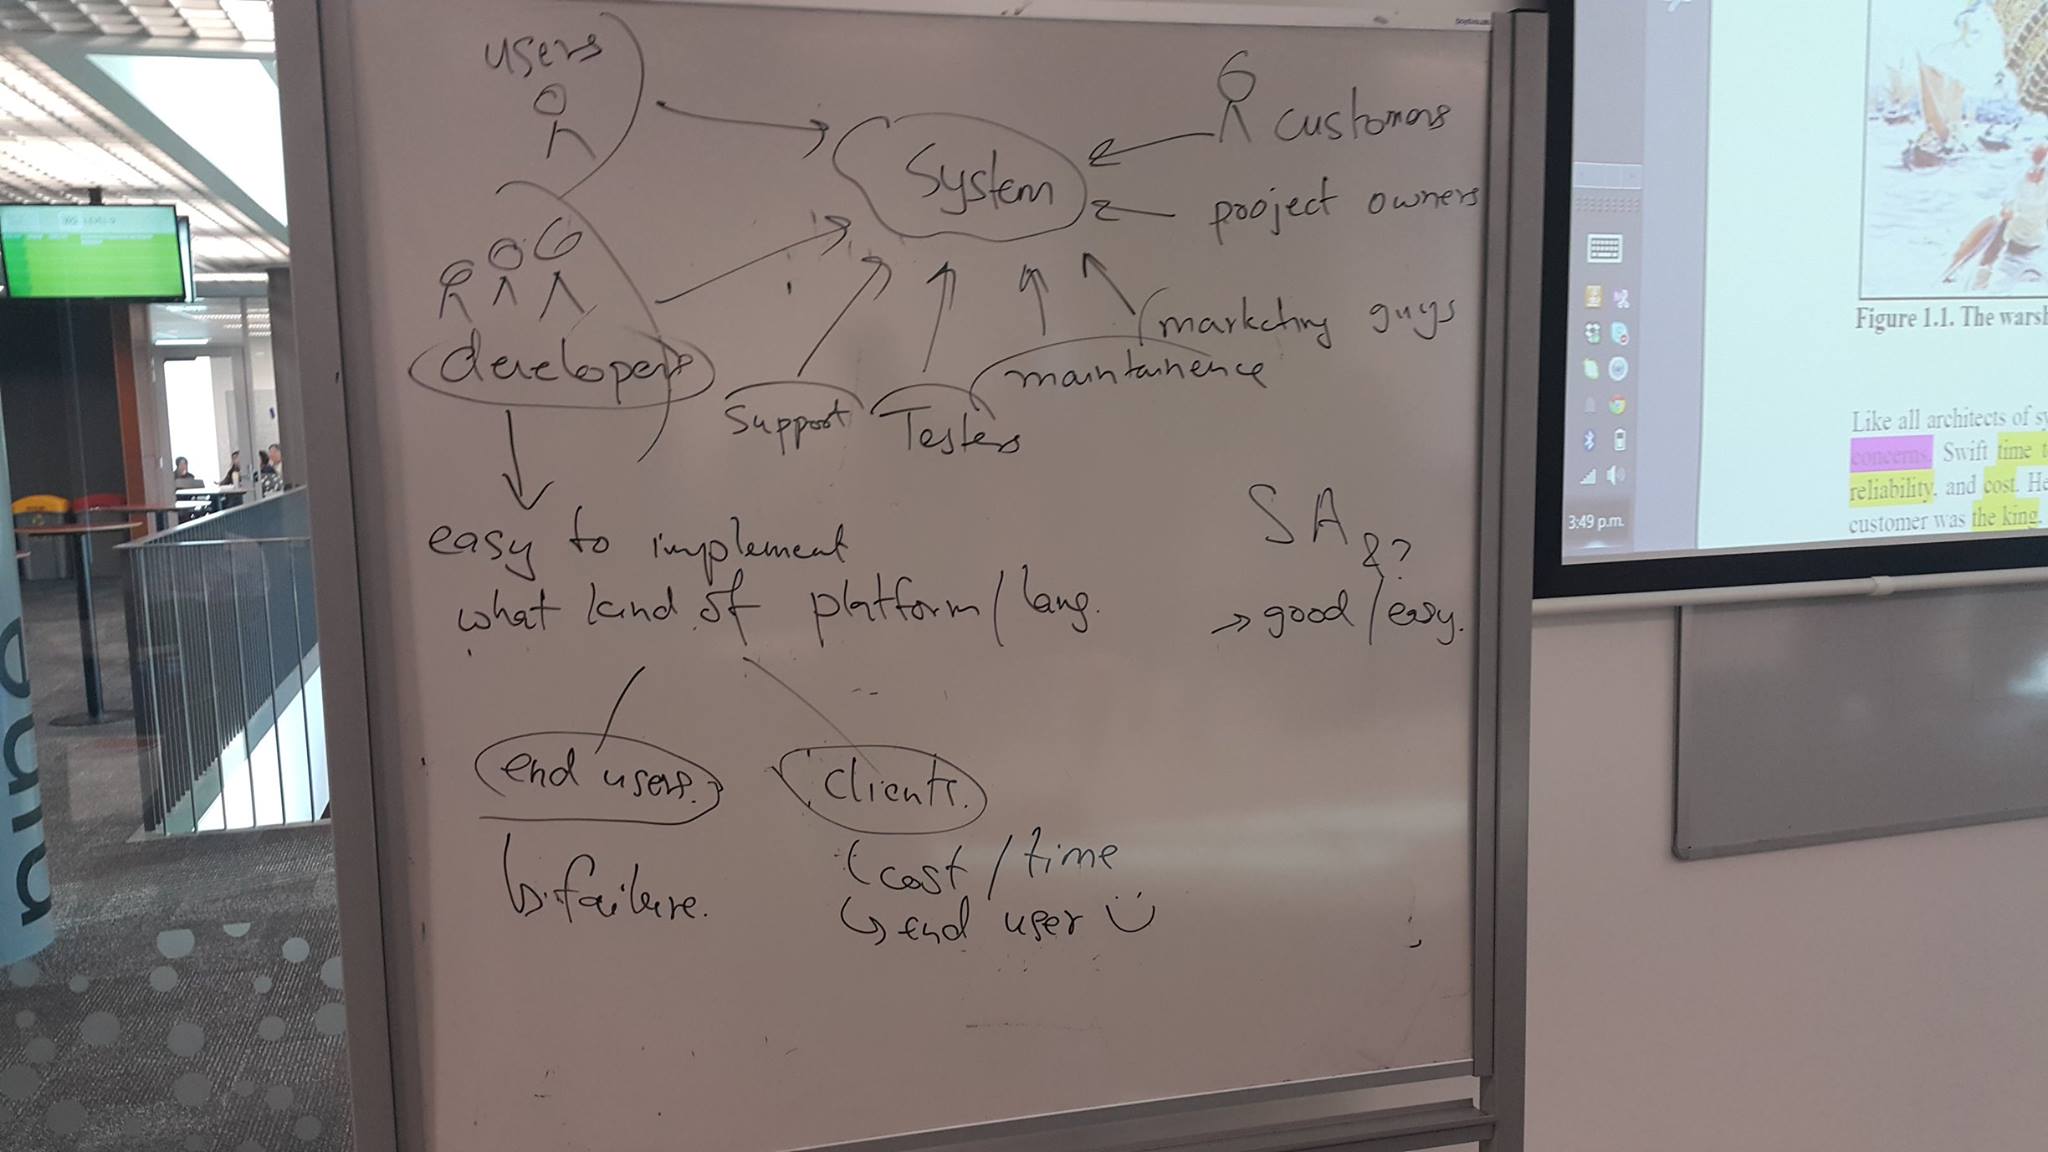 users
System
customers
project owners
developers
marketing guys
maintainence
Support
Testers
easy to implement
what kind of platform/lang.
SA
&?
→ good/easy.
end users.
clients.
failure.
cost/time
↳ end user
Figure 1.1. The warsh
Like all architects of sy
concerns. Swift time t
reliability, and cost. He
customer was the king.
3:49 p.m.